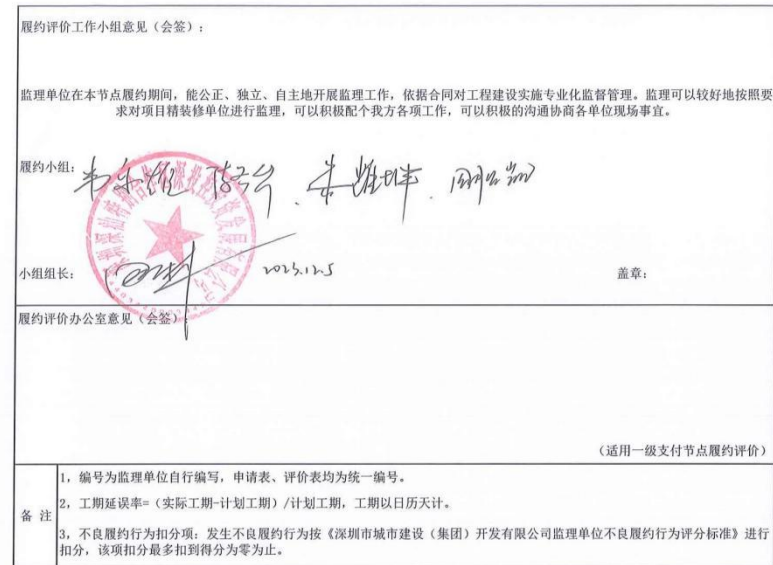 履约评价工作小组意见（会签）：
监理单位在本节点履约期间，能公正、独立、自主地开展监理工作，依据合同对工程建设实施专业化监督管理。监理可以较好地按照要
求对项目精装修单位进行监理，可以积极配个我方各项工作，可以积极的沟通协商各单位现场事宜。
履约小组：
小组组长： 2023.12.5 盖章：
履约评价办公室意见（会签）：
（适用一级支付节点履约评价）
备 注
1，编号为监理单位自行编写，申请表、评价表均为统一编号。
2，工期延误率=（实际工期-计划工期）/计划工期，工期以日历天计。
3，不良履约行为扣分项：发生不良履约行为按《深圳市城市建设（集团）开发有限公司监理单位不良履约行为评分标准》进行
扣分，该项扣分最多扣到得分为零为止。